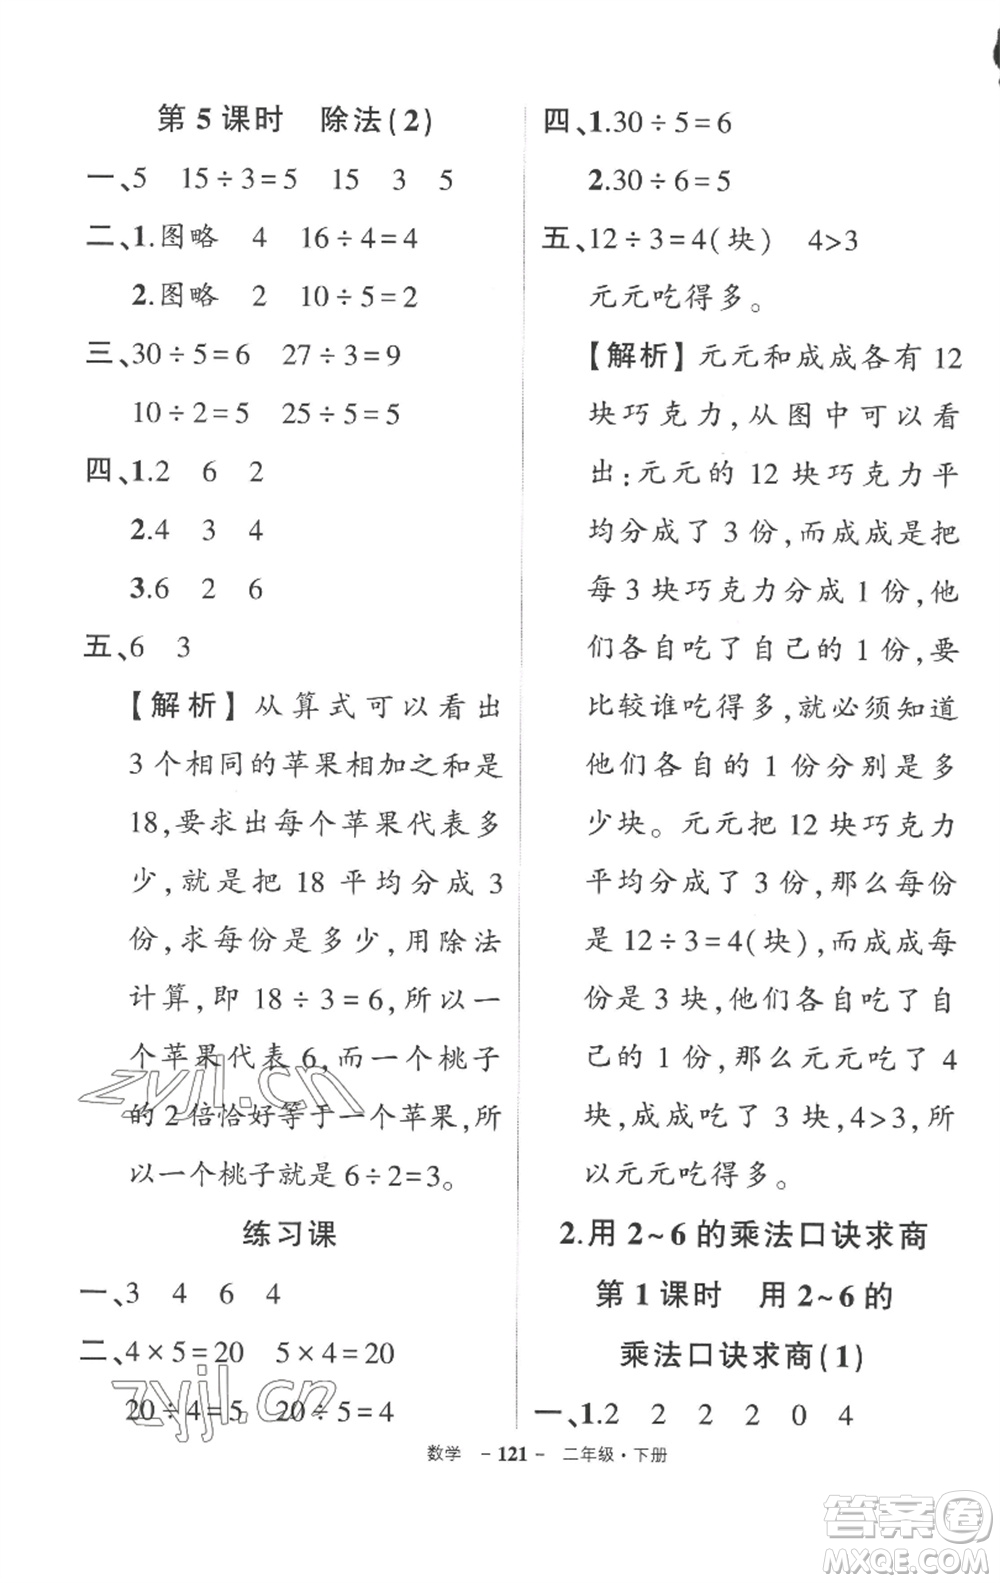 第 5 课时　除法(2)
一、5　15÷3=5　15　3　5
二、1.图略　4　16÷4=4
2.图略　2　10÷5=2
三、30÷5=6　27÷3=9
10÷2=5　25÷5=5
四、1.2　6　2
2.4　3　4
3.6　2　6
五、6　3
【解析】从算式可以看出
3 个相同的苹果相加之和是
18,要求出每个苹果代表多
少,就是把 18 平均分成 3
份,求每份是多少,用除法
计算,即 18÷3=6,所以一
个苹果代表 6,而一个桃子
的 2 倍恰好等于一个苹果,所
以一个桃子就是 6÷2=3。
练习课
一、3　4　6　4
二、4×5=20　5×4=20
20÷4=5　20÷5=4
四、1.30÷5=6
2.30÷6=5
五、12÷3=4(块)　4>3
元元吃得多。
【解析】元元和成成各有 12
块巧克力,从图中可以看
出:元元的 12 块巧克力平
均分成了 3 份,而成成是把
每 3 块巧克力分成 1 份,他
们各自吃了自己的 1 份,要
比较谁吃得多,就必须知道
他们各自的 1 份分别是多
少块。元元把 12 块巧克力
平均分成了 3 份,那么每份
是 12÷3=4(块),而成成每
份是 3 块,他们各自吃了自
己的 1 份,那么元元吃了 4
块,成成吃了 3 块,4>3,所
以元元吃得多。
2.用 2~6 的乘法口诀求商
第 1 课时　用 2~6 的
乘法口诀求商(1)
一、1.2　2　2　2　0　4
数学　- 121 -　二年级·下册
zyjl.cn
zyjl.cn
答案圈
MXQE.COM